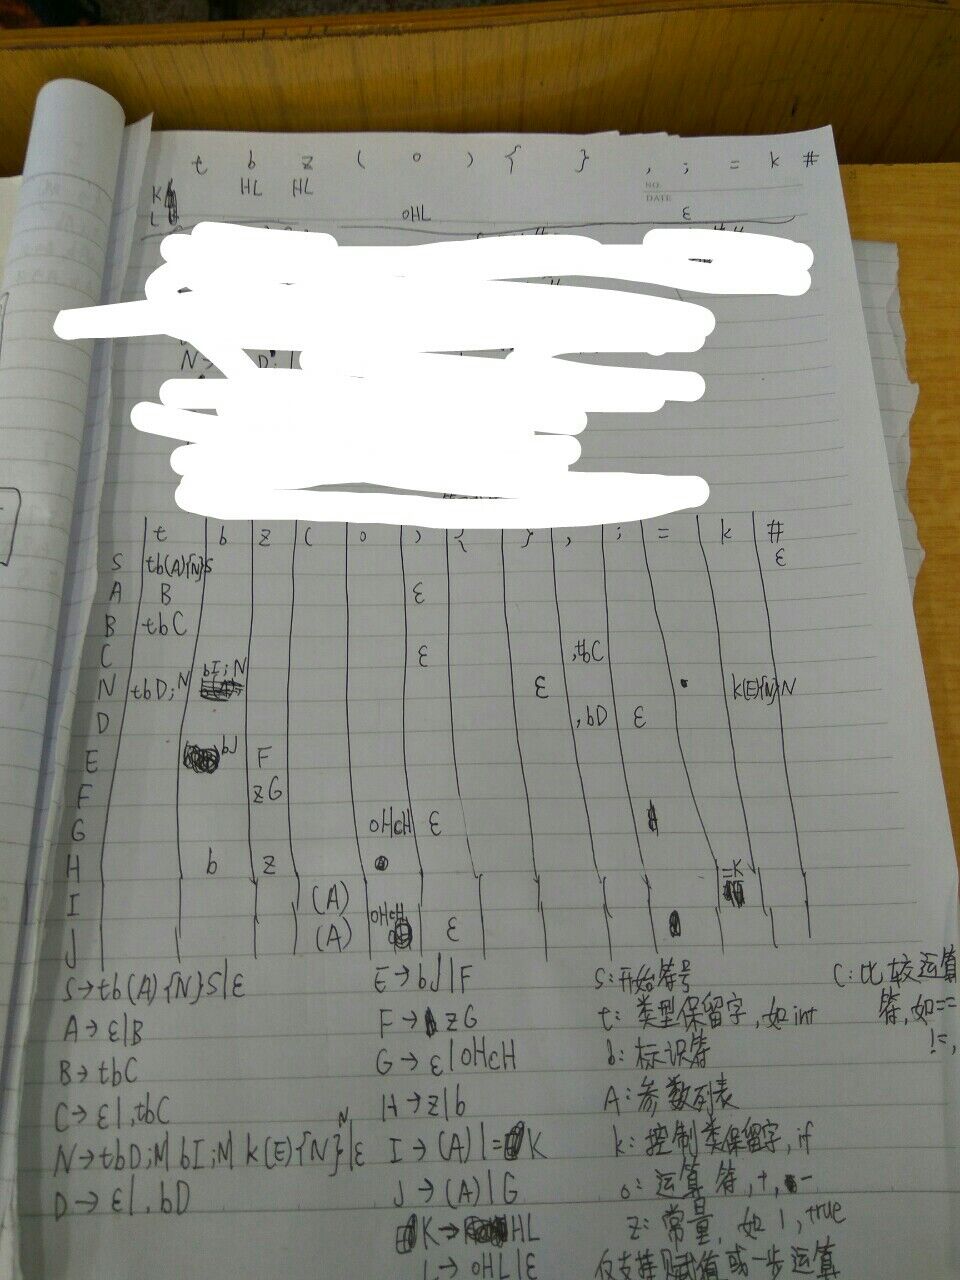 t b z ( o ) { } , ; = k #
K HL HL
L oHL ε
NO.
DATE
N→ D;
t b z ( o ) { } , ; = k #
S tb(A){N}S ε
A B ε
B tbC
C ε ,tbC
N tbD;N bI;N ε k(E){N}N
D ,bD ε
E bJ F
F zG
G oHcH ε
H b z
I (A) =K
J (A) oHcH ε
S→tb(A){N}S|ε
A→ε|B
B→tbC
C→ε|,tbC
N→tbD;N|bI;N|k(E){N}N|ε
D→ε|,bD
E→bJ|F
F→zG
G→ε|oHcH
H→z|b
I→(A)|=K
J→(A)|G
K→HL
L→oHL|ε
S:开始符号
t:类型保留字,如int
b:标识符
A:参数列表
k:控制类保留字,if
o:运算符,+,-
z:常量,如1,true
仅支持赋值或一步运算
C:比较运算
符,如==
!=,